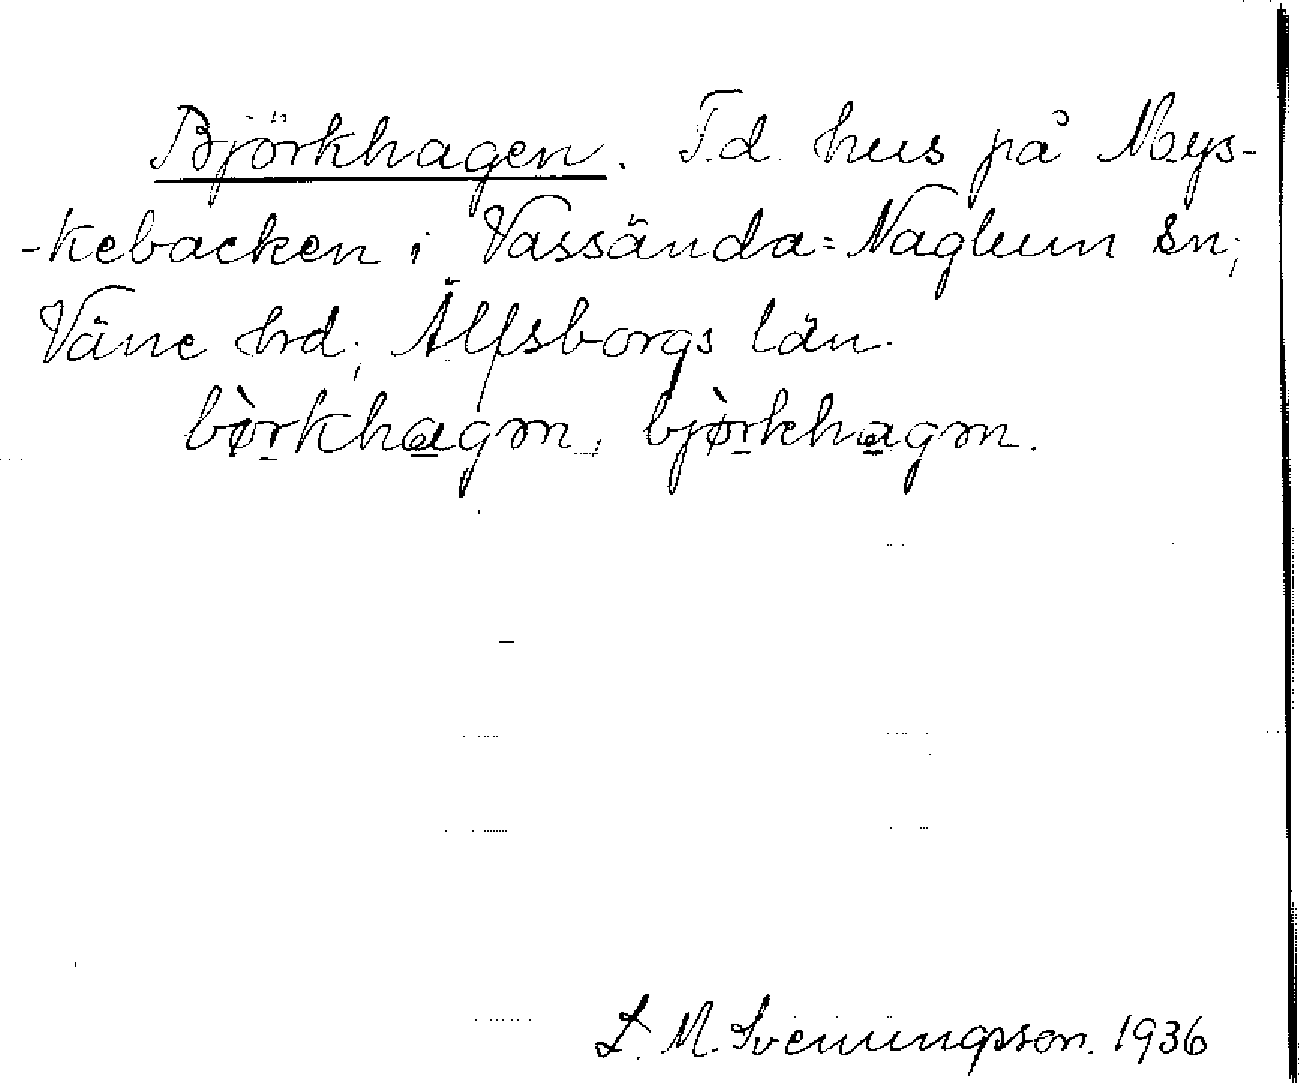 Björkhagen. F.d. hus på Nays-
-kebacken i Vassända=Naglum sn;
Väne hrd; Älfsborgs län.
bø̀rkhagən, bjø̀rkhagən.
L. M. Sveningsson. 1936